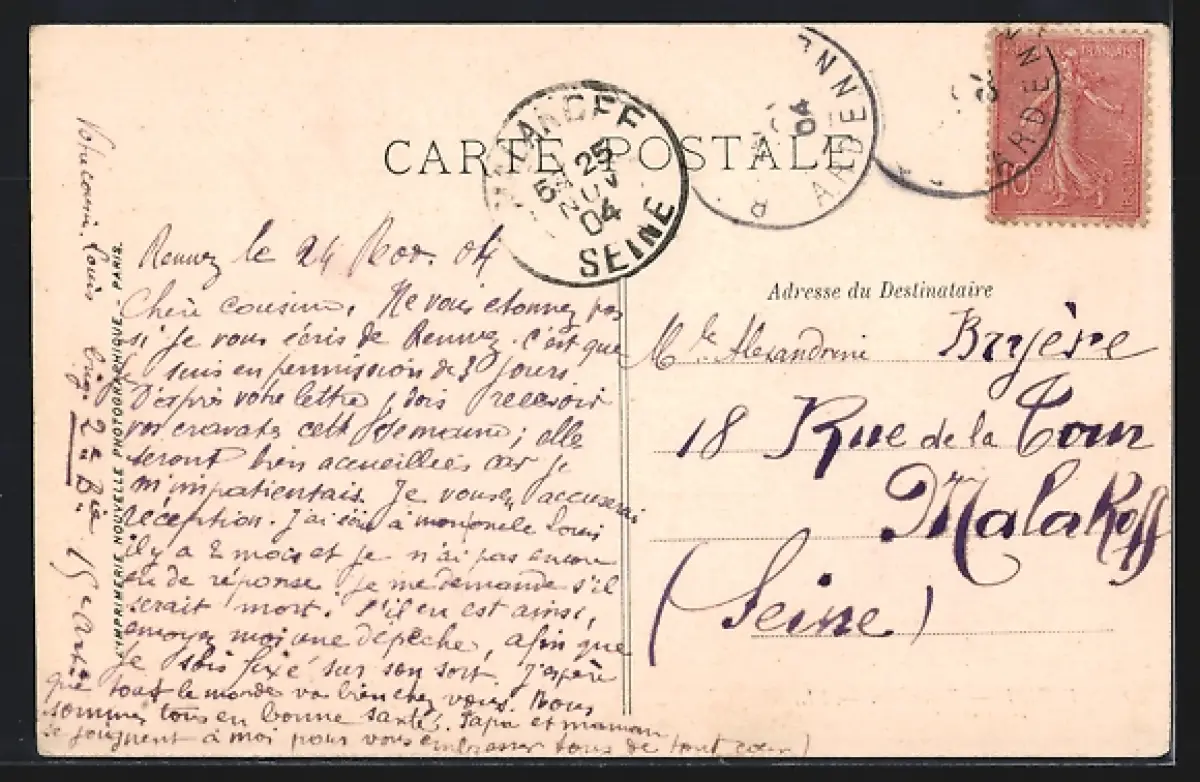 CARTE POSTALE
MALAKOFF
5 25
NOV
04
SEINE
ARDENNE
04
ARDENN
FRANÇAISE
10
Adresse du Destinataire
Mlle Alexandrine Bryère
18 Rue de la Tour
Malakoff
(Seine)
Renwez le 24 Nov. 04
Chère cousine, Ne vous étonnez pas
si je vous écris de Renwez. C'est que
je suis en permission de 3 jours
D'après votre lettre je dois recevoir
vos cravates cette semaine; elle
seront bien accueillies car je
m'impatientais. Je vous en accuserai
réception. J'ai écrit à mon oncle Louis
il y a 2 mois et je n'ai pas encore
eu de réponse. Je me demande s'il
serait mort. S'il en est ainsi,
envoyez moi une dépêche, afin que
je sois fixé sur son sort. J'espère
que tout le monde va bien chez vous. Nous
sommes tous en bonne santé. Papa et maman
se joignent à moi pour vous embrasser tous de tout coeur)
Votre cousin Louis Brig. 2e Bie 15e Art
IMPRIMERIE NOUVELLE PHOTOGRAPHIQUE - PARIS.